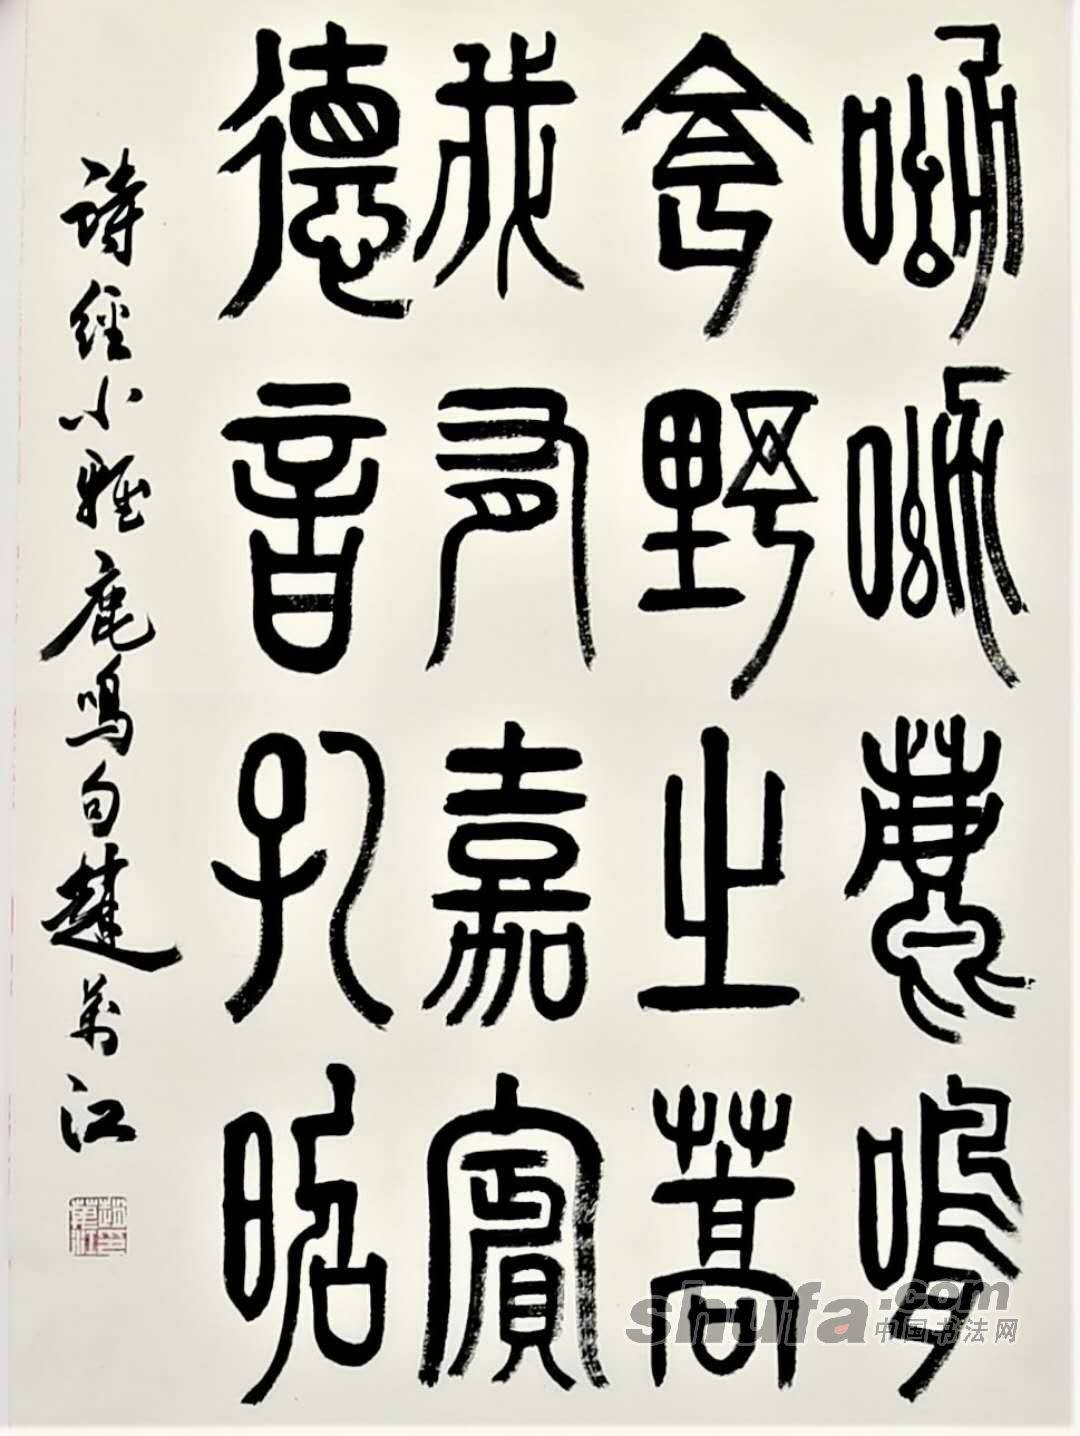 呦呦鹿鳴
食野之蒿
我有嘉賓
德音孔昭
詩經小雅鹿鳴句趙萬江
shufa.com
中国书法网